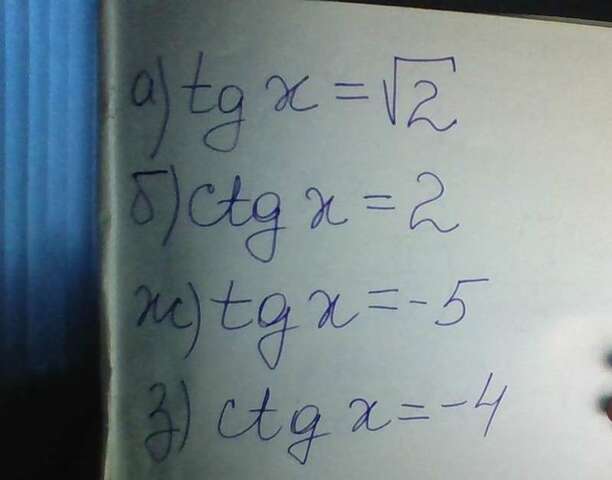 а) tg x = √2
б) ctg x = 2
ж) tg x = -5
з) ctg x = -4